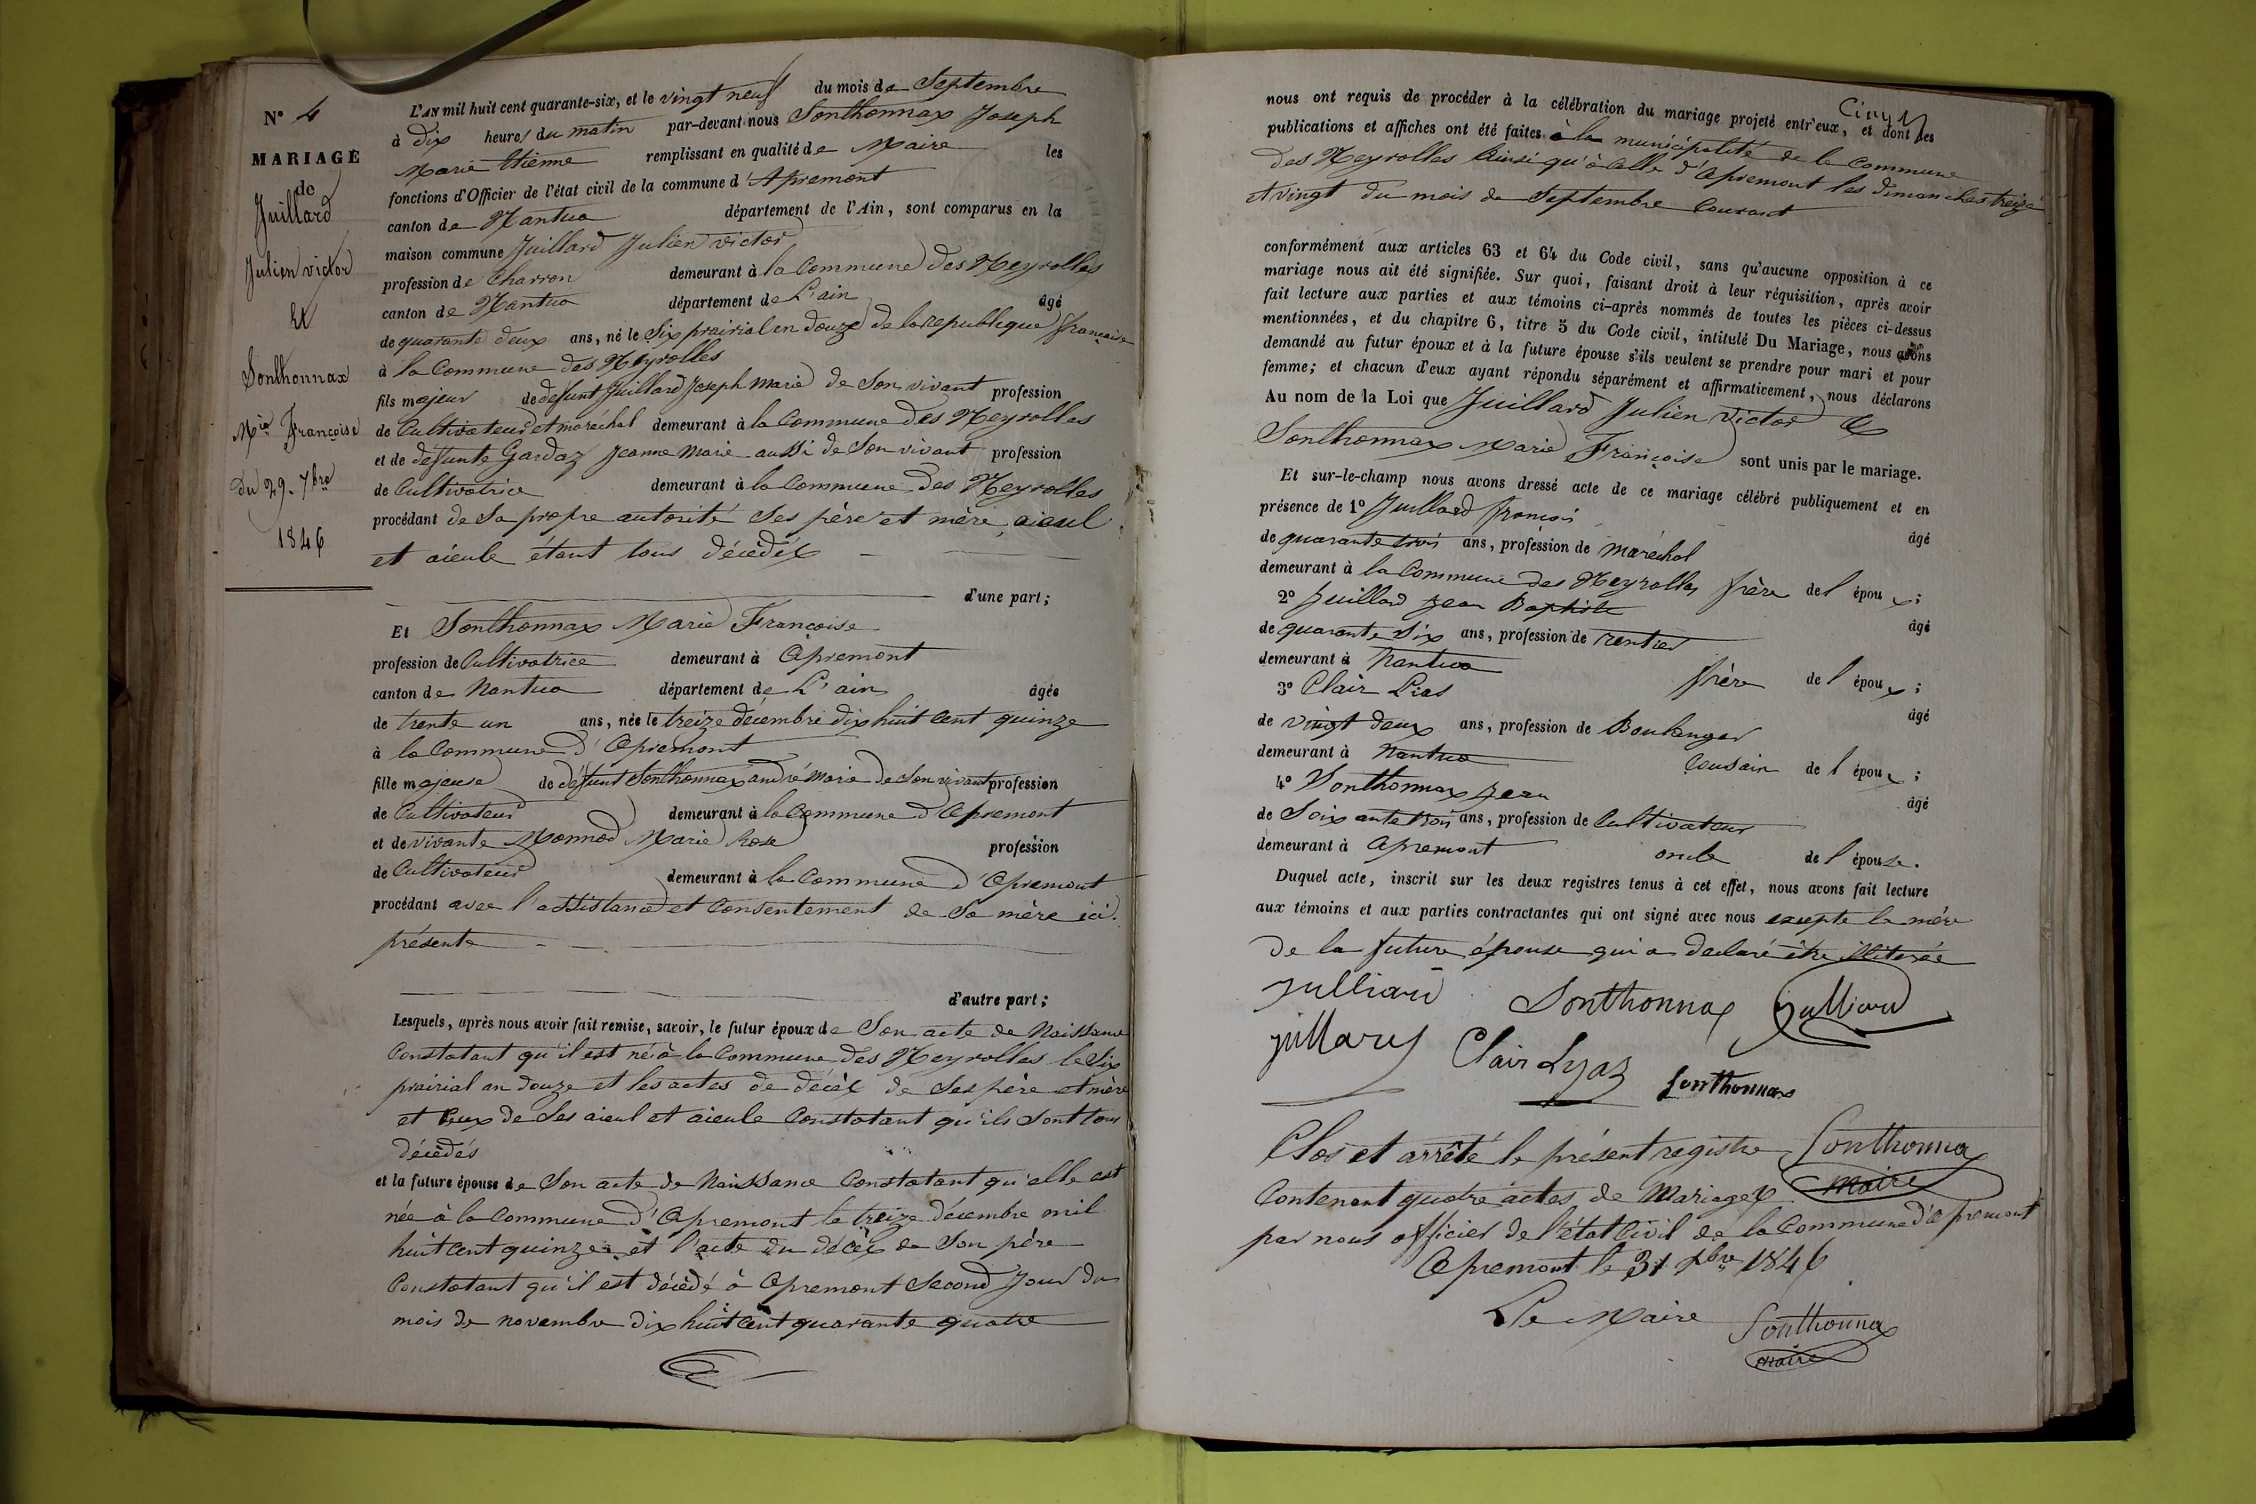 N° 4
MARIAGE
de
Juillard
Julien victor
Et
Sonthonnax
Mie Françoise
Du 29. 7bre
1846
L'AN mil huit cent quarante-six, et le vingt neuf du mois de Septembre
à dix heures du matin par-devant nous Sonthonnax Joseph
Marie Etienne remplissant en qualité de Maire les
fonctions d'Officier de l'état civil de la commune d'Apremont
canton de Nantua département de l'Ain, sont comparus en la
maison commune Juillard Julien victor
profession de Charron demeurant à la Commune des Neyrolles
canton de Nantua département de L'ain âgé
de quarante deux ans, né le Six prairial en douze de la République française
à la Commune des Neyrolles
fils majeur de defunt Juillard Joseph Marie de Son vivant profession
de Cultivateur et maréchal demeurant à la Commune des Neyrolles
et de defunte Gardaz Jeanne Marie aussi de Son vivant profession
de Cultivatrice demeurant à la Commune des Neyrolles
procédant de Sa propre autorité Ses père et mère, aieul
et aieule étant tous décédés
d'une part;
Et Sonthonnax Marie Françoise
profession de Cultivatrice demeurant à Apremont
canton de Nantua département de L'ain âgée
de trente un ans, née le treize décembre dix huit cent quinze
à la Commune d'Apremont
fille majeure de défunt Sonthonnax andré Marie de Son vivant profession
de Cultivateur demeurant à la Commune d'Apremont
et de vivante Monnod Marie Rose profession
de Cultivateur demeurant à la Commune d'Apremont
procédant avec l'assistance et Consentement de Sa mère ici
présente
d'autre part;
Lesquels, après nous avoir fait remise, savoir, le futur époux de Son acte de Naissance
Constatant qu'il est né à la Commune des Neyrolles le Six
prairial an douze et les actes de décès de Ses père et mère
et Ceux de Ses aieul et aieule Constatant qu'ils Sont tous
décédés
et la future épouse de Son acte de Naissance Constatant qu'elle est
née à la Commune d'Apremont le treize décembre mil
huit cent quinze et l'acte du décès de Son père
Constatant qu'il est décédé à Apremont Second Jour du
mois de novembre dix huit cent quarante quatre
Cinq
nous ont requis de procéder à la célébration du mariage projeté entr'eux, et dont les
publications et affiches ont été faites à la municipalité de la Commune
des Neyrolles Ainsi qu'à Celle d'Apremont les dimanches treize
et vingt du mois de Septembre Courant
conformément aux articles 63 et 64 du Code civil, sans qu'aucune opposition à ce
mariage nous ait été signifiée. Sur quoi, faisant droit à leur réquisition, après avoir
fait lecture aux parties et aux témoins ci-après nommés de toutes les pièces ci-dessus
mentionnées, et du chapitre 6, titre 5 du Code civil, intitulé Du Mariage, nous avons
demandé au futur époux et à la future épouse s'ils veulent se prendre pour mari et pour
femme; et chacun d'eux ayant répondu séparément et affirmativement, nous déclarons
Au nom de la Loi que Juillard Julien Victor &
Sonthonnax Marie Françoise sont unis par le mariage.
Et sur-le-champ nous avons dressé acte de ce mariage célébré publiquement et en
présence de 1° Juillard françois
âgé
de quarante trois ans, profession de maréchal
demeurant à la Commune des Neyrolles frère de l'époux;
2° Juillard Jean Baptiste
âgé
de quarante Six ans, profession de rentier
demeurant à Nantua frère de l'époux;
3° Clair Lias
âgé
de vingt deux ans, profession de Boulanger
demeurant à Nantua Cousain de l'époux;
4° Sonthonnax Jean
âgé
de Soixante trois ans, profession de Cultivateur
demeurant à Apremont oncle de l'épouse.
Duquel acte, inscrit sur les deux registres tenus à cet effet, nous avons fait lecture
aux témoins et aux parties contractantes qui ont signé avec nous excepte la mére
de la future épouse qui a declaré être illiterée
julliard Sonthonnax julliard
juillard Clair Lyaz Sonthonnax
Clos et arrêté le présent registre Sonthonnax
Contenant quatre actes de Mariages maire
par nous officier de l'état Civil de la Commune d'Apremont
Apremont le 31 Xbre 1846
Le Maire Sonthonnax
maire